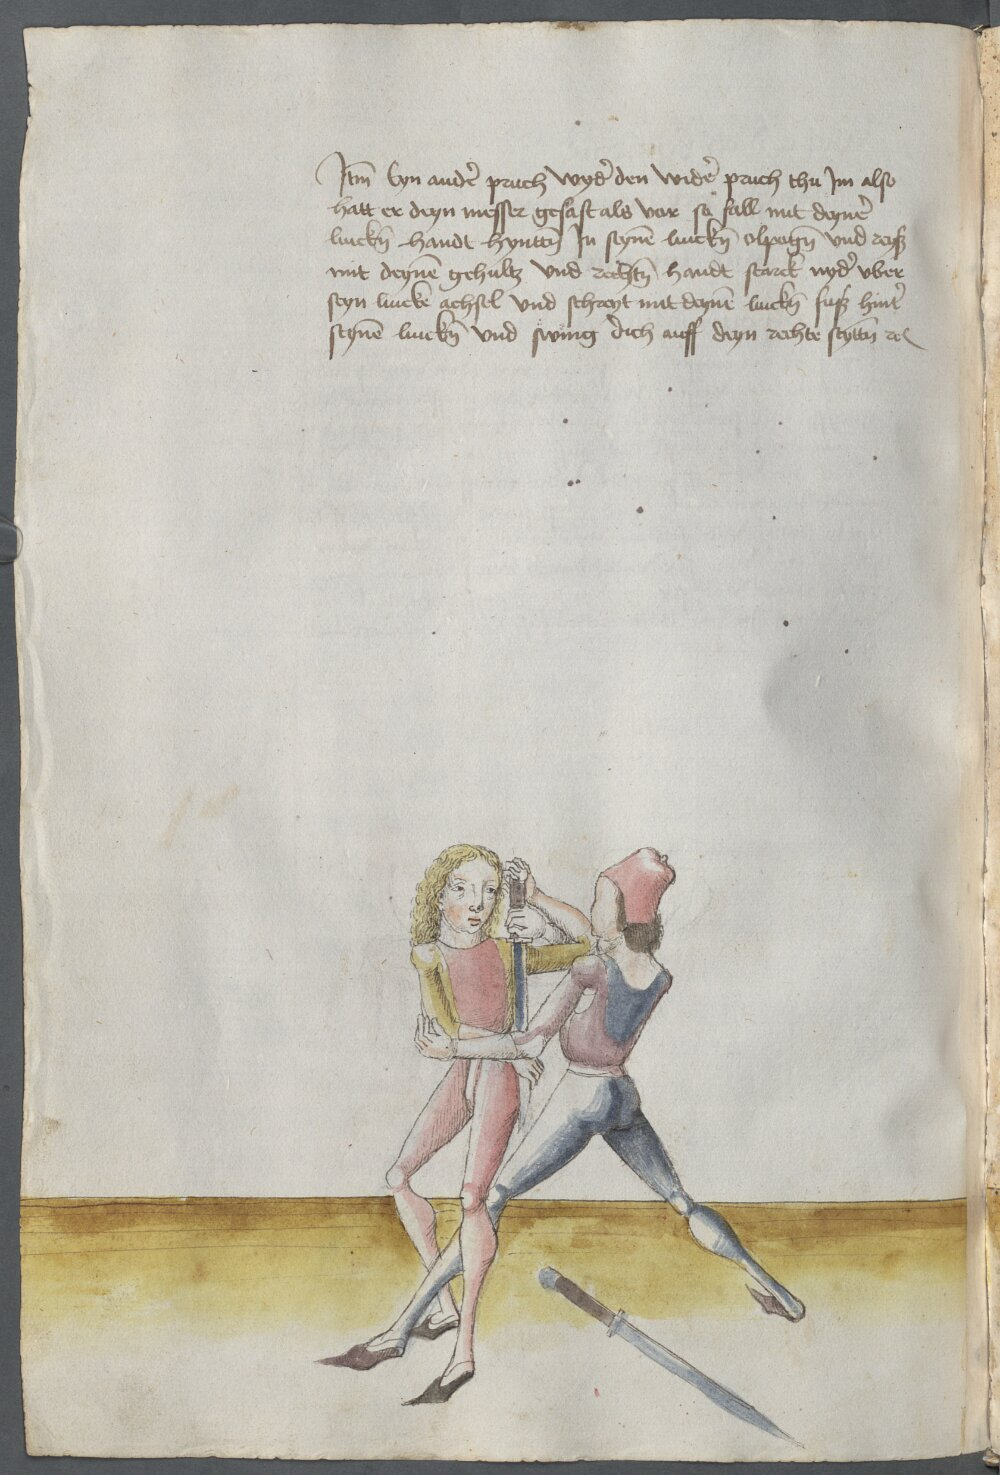 Itm̄ Eyn ander̄ pruch wyder̄ den wider̄ pruch thu Im also
hatt er deyn messer gefast als vor so fall mit deyner̄
linckn̄ handt hynttn̄ In seynē linckn̄ elpogn̄ und reysz
mit deynē gehultz und rechtn̄ handt starck nyder̄ vber
seyn lincke achsel und schreyt mit deynē linckn̄ fusz hinter̄
seynē linckn̄ und swing dich auff deyn rechte seyttn̄ rc